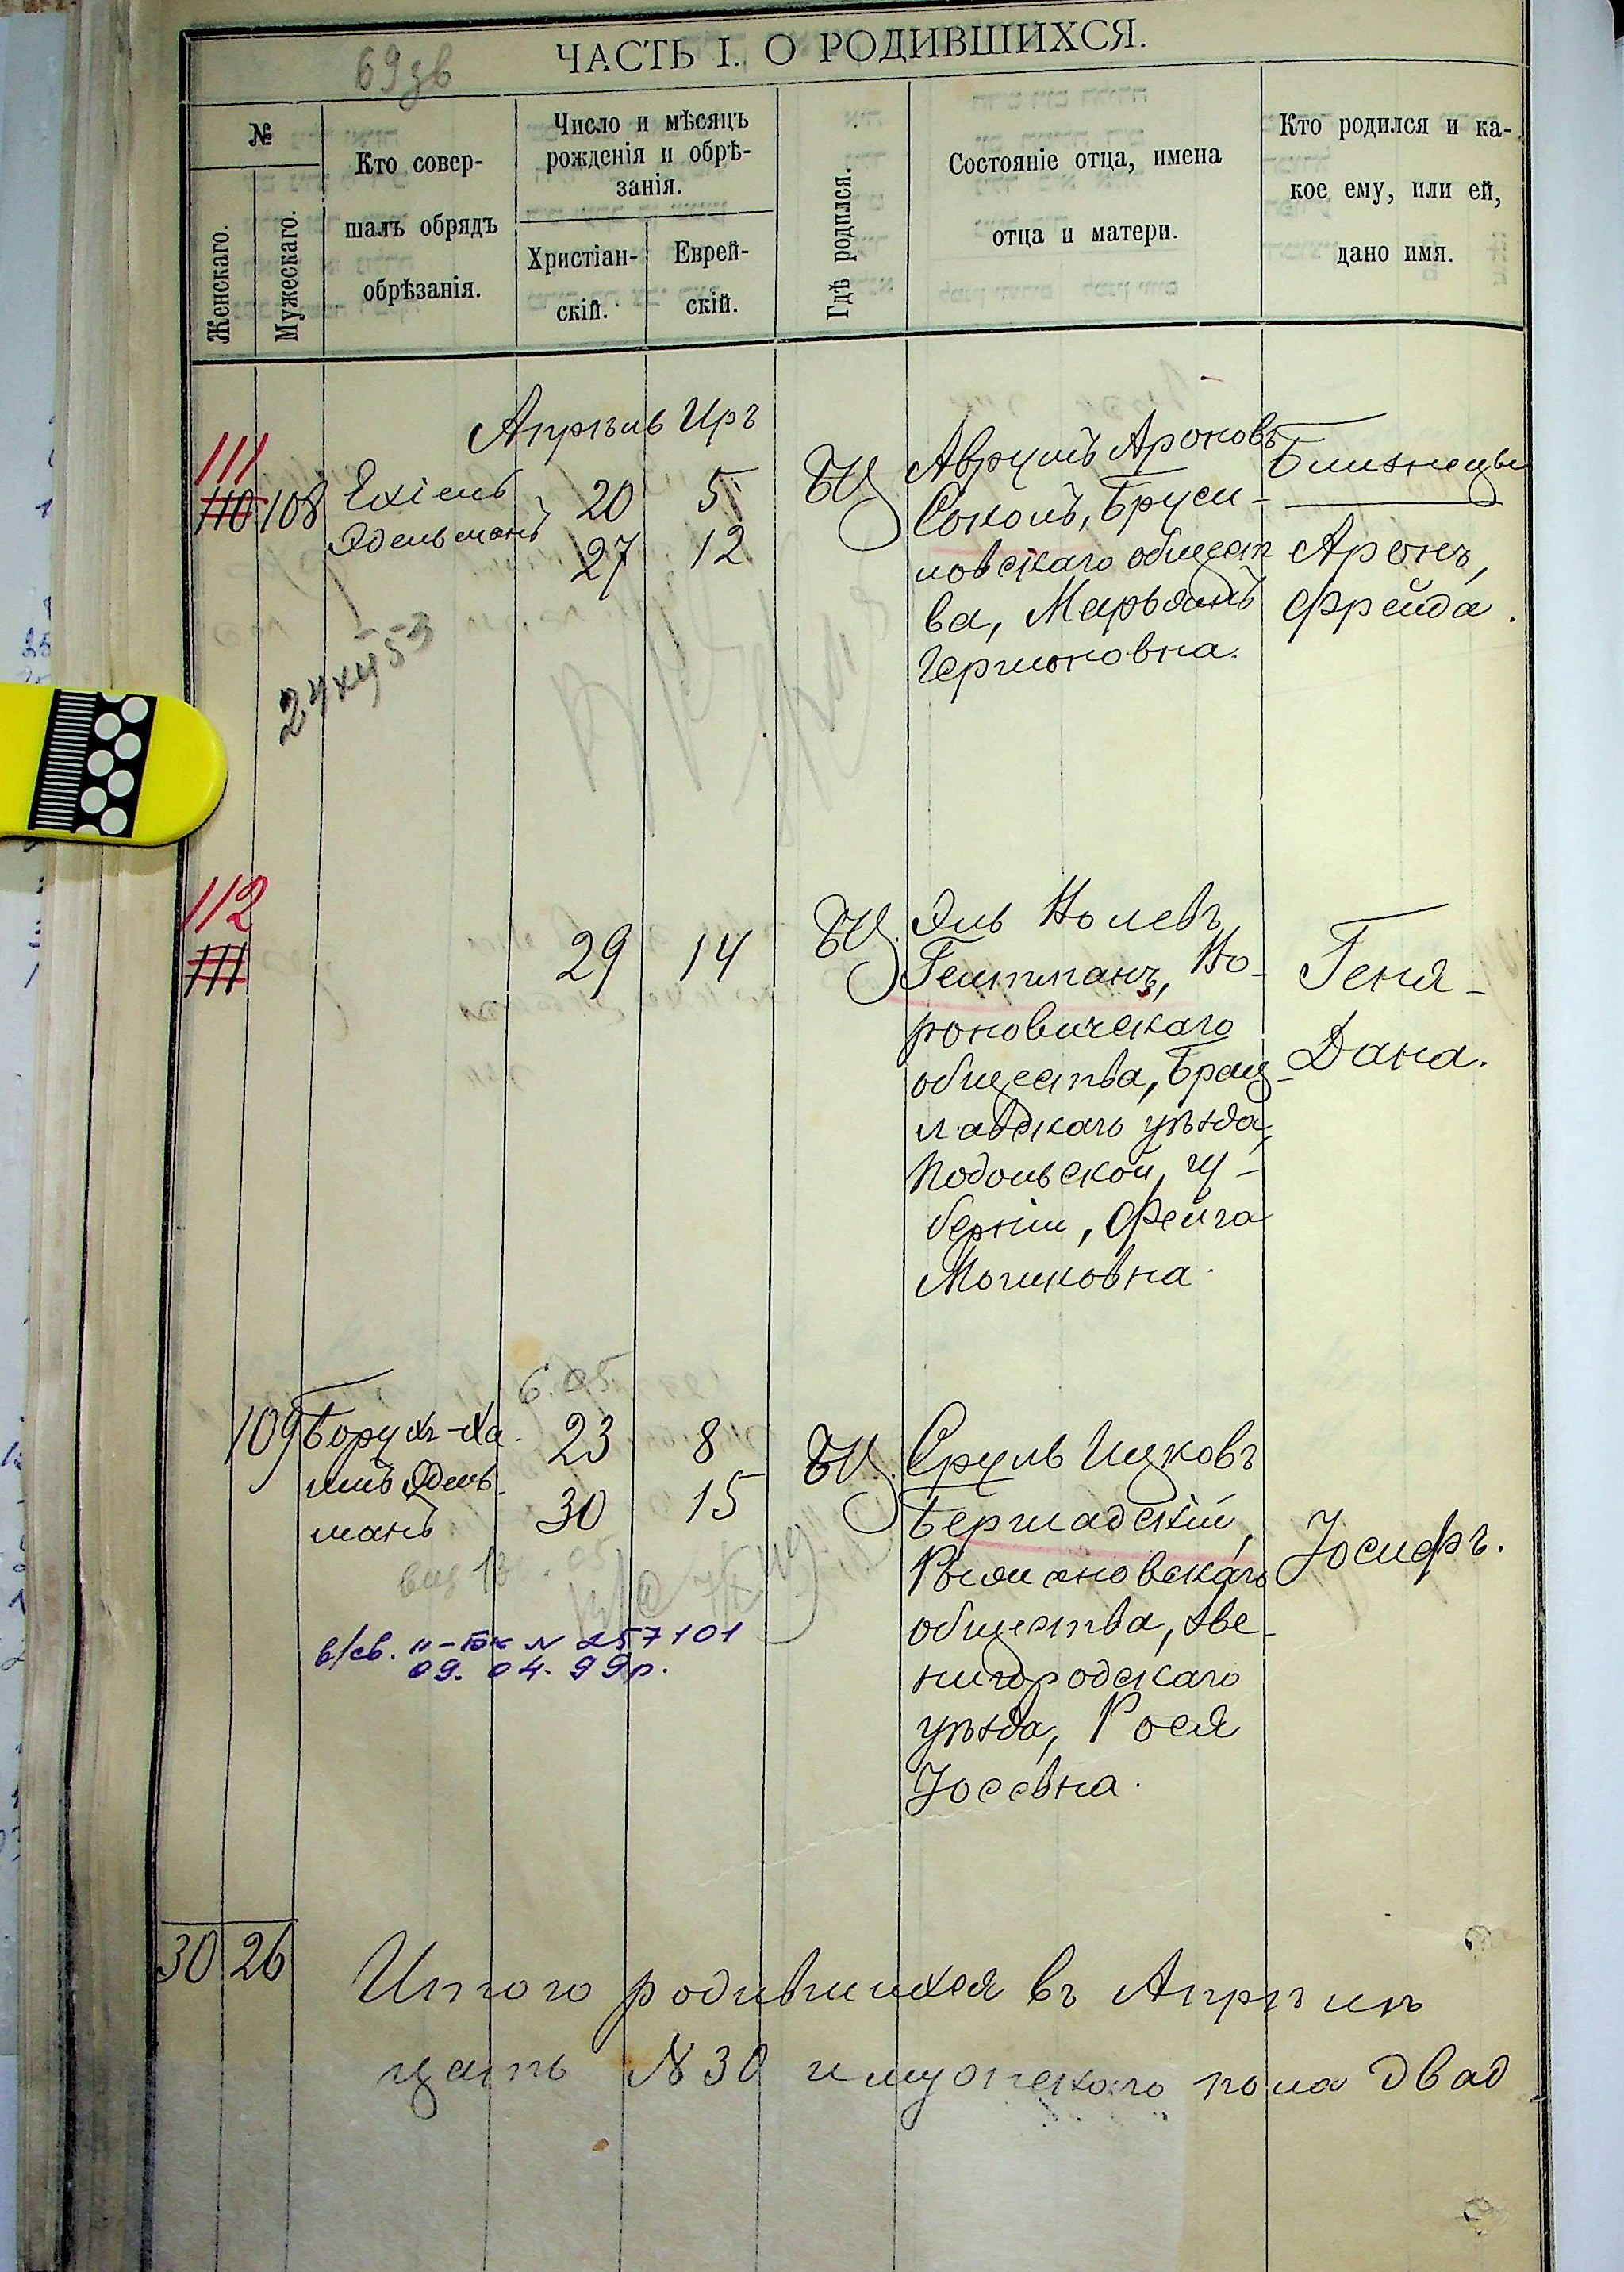 69зв
ЧАСТЬ I. О РОДИВШИХСЯ.
№
Женскаго.
Мужескаго.
Кто совер-
шалъ обрядъ
обрѣзанія.
Число и мѣсяцъ
рожденія и обрѣ-
занія.
Христіан-
скій.
Еврей-
скій.
Гдѣ родился.
Состояніе отца, имена
отца и матери.
Кто родился и ка-
кое ему, или ей,
дано имя.
Апрѣль Иръ
111
110 108
Ехіель
Эдельманъ
20 5
27 12
БЦ
Аврумъ Ароновъ
Соколъ, Бруси-
ловскаго общест
ва, Марьямъ
Гершоновна.
Близнецы
Аронъ,
Фрейда.
112
111
29 14
БЦ.
Эль Нолевъ
Гельтманъ, Во-
роновичскаго
общества, Брац-
лавскаго уѣзда,
Подольской гу-
берніи, Фейга
Мошковна.
Геня-
Дана.
6.05
109
Борухъ-Ха
имъ Эдель-
манъ
23 8
30 15
БЦ.
Сруль Ицковъ
Бершадскій,
общества, Зве-
нигородскаго
уѣзда, Рося
Іосевна.
Іосифъ.
в/св. № 257101
09. 04. 99р.
30 26
Итого родившихся въ Апрѣлѣ
цать № 30 и мужескаго пола двад